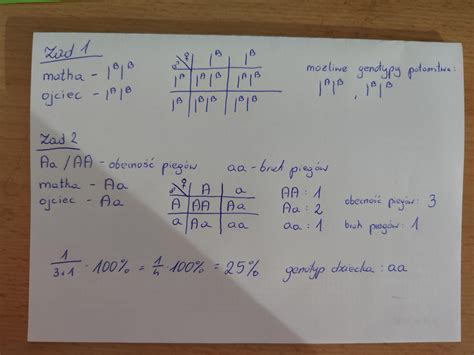 Zad 1
matka - I^B I^B
ojciec - I^A I^B
♂ ♀ | I^B | I^B
I^A | I^A I^B | I^A I^B
I^B | I^B I^B | I^B I^B
możliwe genotypy potomstwa:
I^A I^B , I^B I^B
Zad 2
Aa / AA - obecność piegów aa - brak piegów
matka - Aa
ojciec - Aa
♂ ♀ | A | a
A | AA | Aa
a | Aa | aa
AA : 1
Aa : 2
aa : 1
obecność piegów : 3
brak piegów : 1
1/3+1 · 100% = 1/4 · 100% = 25% genotyp dziecka : aa